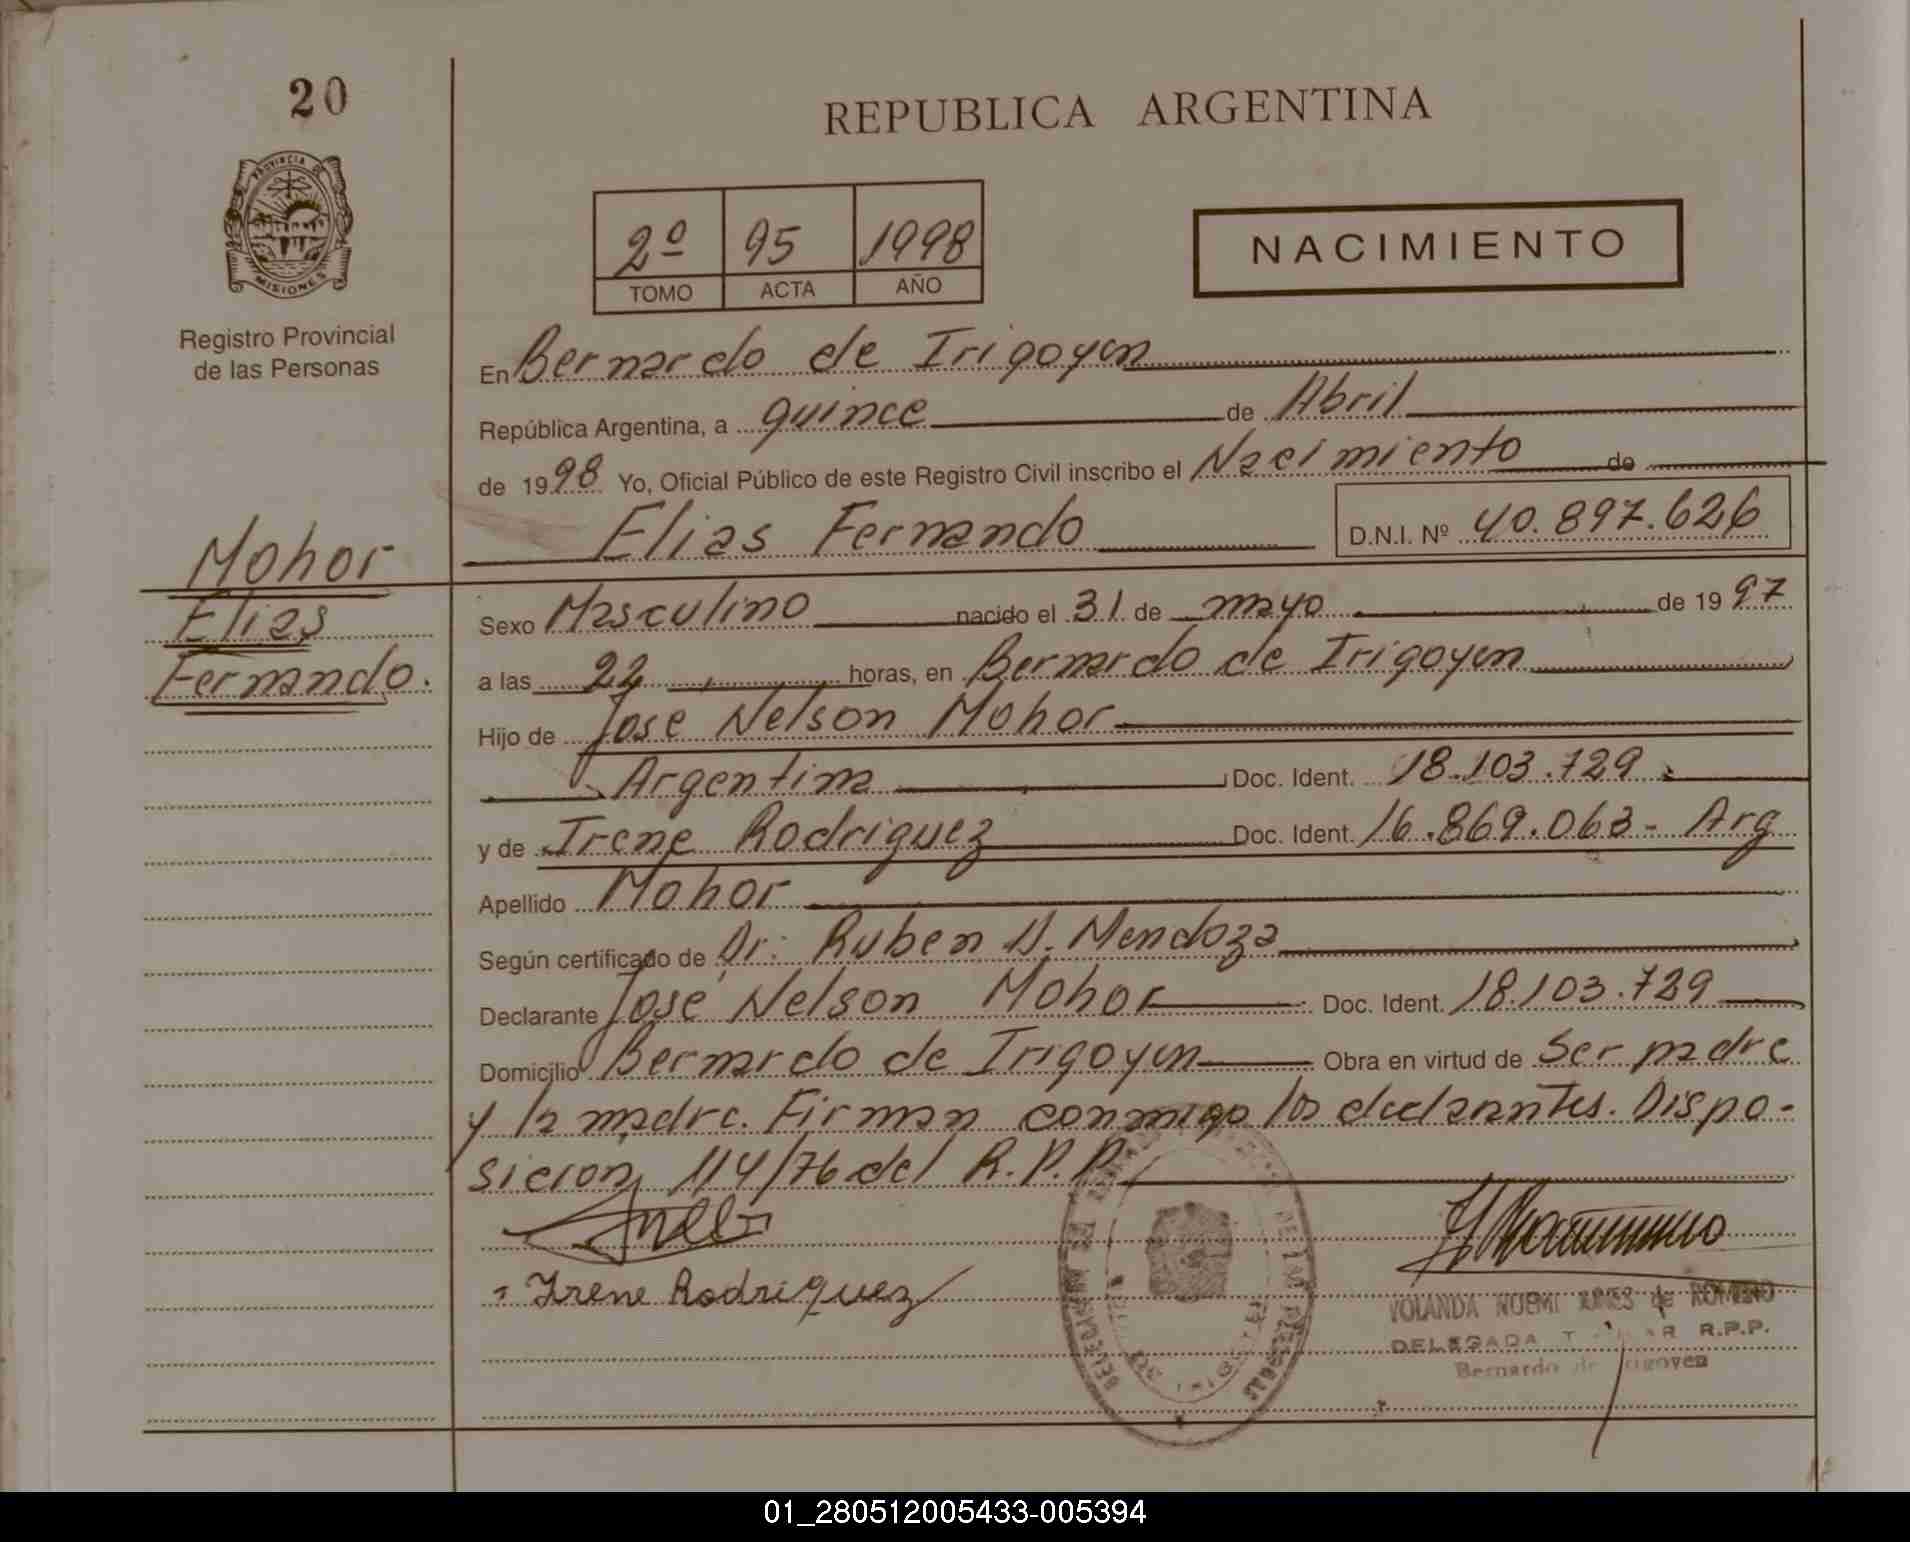 20
REPUBLICA ARGENTINA
PROVINCIA DE
MISIONES
Registro Provincial
de las Personas
2º 95 1998
TOMO ACTA AÑO
NACIMIENTO
En Bernardo de Irigoyen
República Argentina, a quince de Abril
de 1998 Yo, Oficial Público de este Registro Civil inscribo el Nacimiento de
Elias Fernando D.N.I. Nº 40.897.626
Mohor
Elias
Fernando.
Sexo Masculino nacido el 31 de mayo de 1997
a las 22 horas, en Bernardo de Irigoyen
Hijo de Jose Nelson Mohor
Argentina Doc. Ident. 18.103.729
y de Irene Rodriguez Doc. Ident. 16.869.063- Arg
Apellido Mohor
Según certificado de Dr: Ruben D. Mendoza
Declarante José Nelson Mohor Doc. Ident. 18.103.729
Domicilio Bernardo de Irigoyen Obra en virtud de Ser padre
y la madre. Firman conmigo los declarantes. Dispo-
sicion 114/76 del R.P.P.
Irene Rodriguez
YOLANDA NUEMI de ROMERO
DELEGADA R.P.P.
Bernardo de Irigoyen
01_280512005433-005394